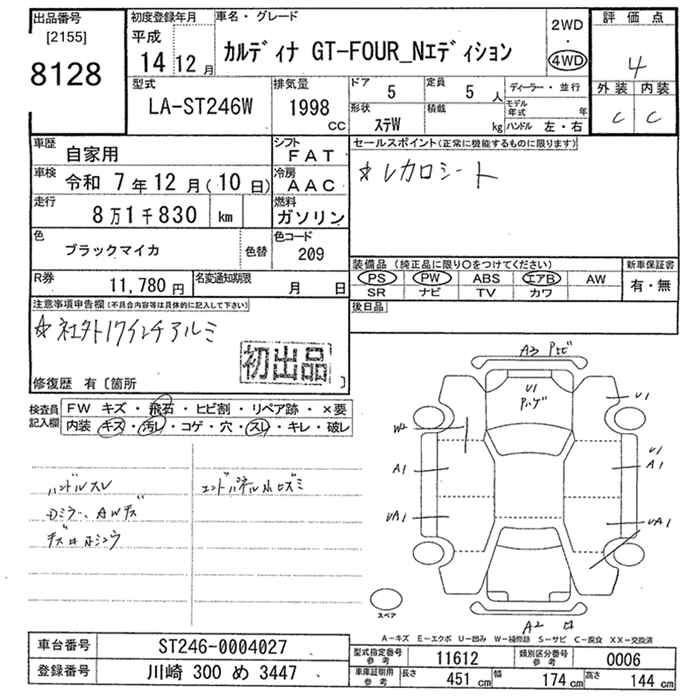 出品番号
[2155]
8128
初度登録年月
平成
14 12 月
車名・グレード
カルディナ GT-FOUR_Nエディション
2WD
・
4WD
評価点
4
外装 内装
C C
型式
LA-ST246W
排気量
1998
CC
ドア
5
定員
5 人
ディーラー・並行
形状
ステW
積載
kg
モデル年式 年
ハンドル 左・右
車歴
自家用
シフト
FAT
車検
令和 7年12月(10日)
冷房
AAC
走行
8万1千830 km
燃料
ガソリン
色
ブラックマイカ
色替
色コード
209
R券
11,780円
名変通知期限
月 日
セールスポイント(正常に機能するものに限ります)
☆レカロシート
装備品 (純正品に限り○をつけてください)
PS PW ABS エアB AW
SR ナビ TV カワ
新車保証書
有・無
後日品
注意事項申告欄(不具合内容等は具体的に記入して下さい)
☆社外17インチアルミ
初出品
修復歴 有〔箇所 〕
検査員
記入欄
FW キズ・飛石・ヒビ割・リペア跡・×要
内装 キズ・汚レ・コゲ・穴・スレ・キレ・破レ
ハンドルスレ
Dミラー、AWキズ
エンドパネル小ヒズミ
A3
U1
U1
W2
A1
UA1
U1
A1
UA1
A2
スペア
A-キズ E-エクボ U-凹み W-補修跡 S-サビ C-腐食 XX-交換済
車台番号
ST246-0004027
登録番号
川崎 300 め 3447
型式指定番号
参考
11612
類別区分番号
参考
0006
車庫証明用
参考
長さ 451 cm
幅 174 cm
高さ 144 cm